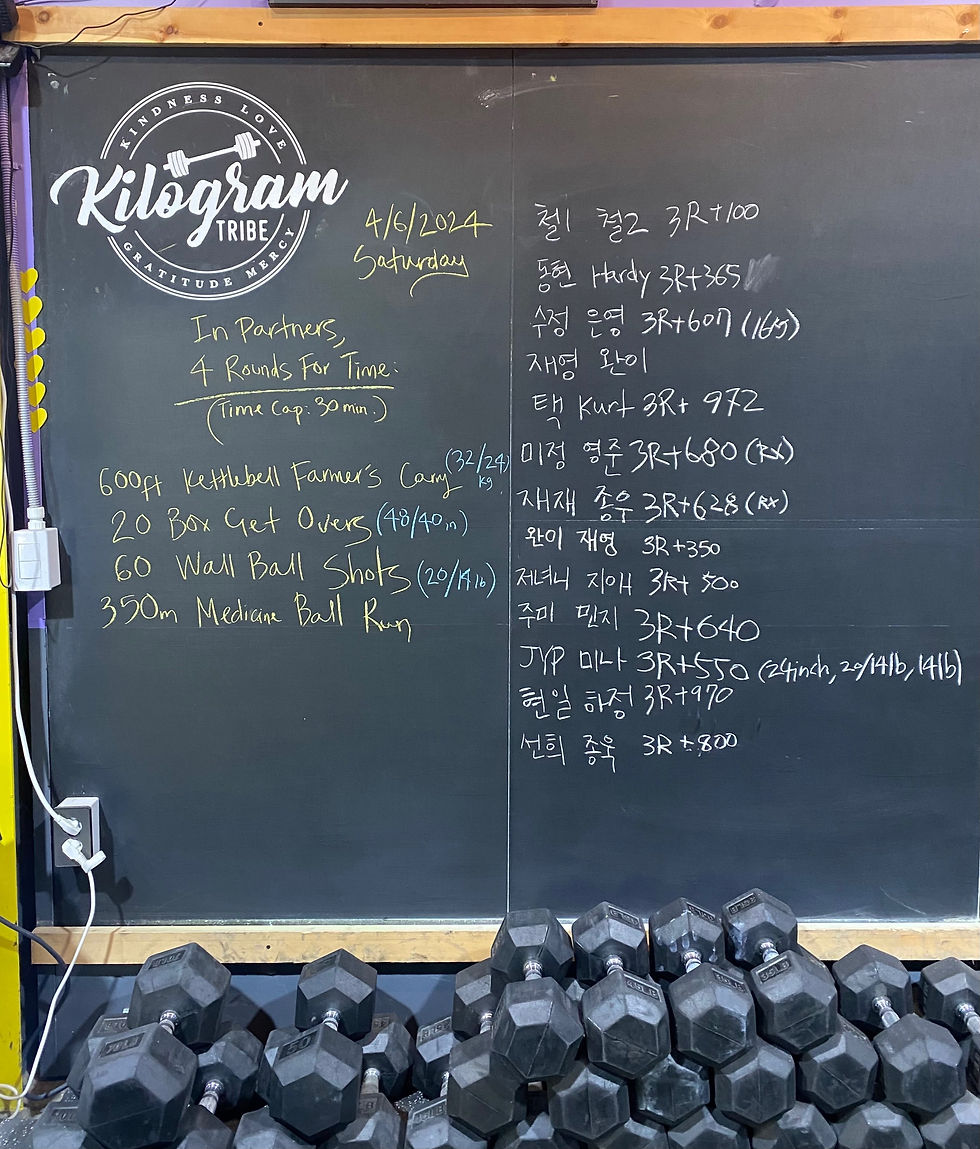 KINDNESS LOVE
Kilogram
TRIBE
GRATITUDE MERCY
4/6/2024
Saturday
In Partners,
4 Rounds For Time:
(Time Cap: 30 min.)
600ft Kettlebell Farmer's Carry (32/24 kg)
20 Box Get Overs (48/40 in)
60 Wall Ball Shots (20/14 lb)
350m Medicine Ball Run
철1 철2 3R+100
동현 Hardy 3R+365
수정 은영 3R+607 (16kg)
재영 완이
택 Kurt 3R+ 972
미정 영준 3R+680 (RX)
재재 종우 3R+628 (RX)
완이 재영 3R+350
저녀니 지애 3R+ 500
주미 민지 3R+640
JYP 미나 3R+550 (24inch, 20/14lb, 14lb)
현일 하정 3R+970
선희 종욱 3R+800